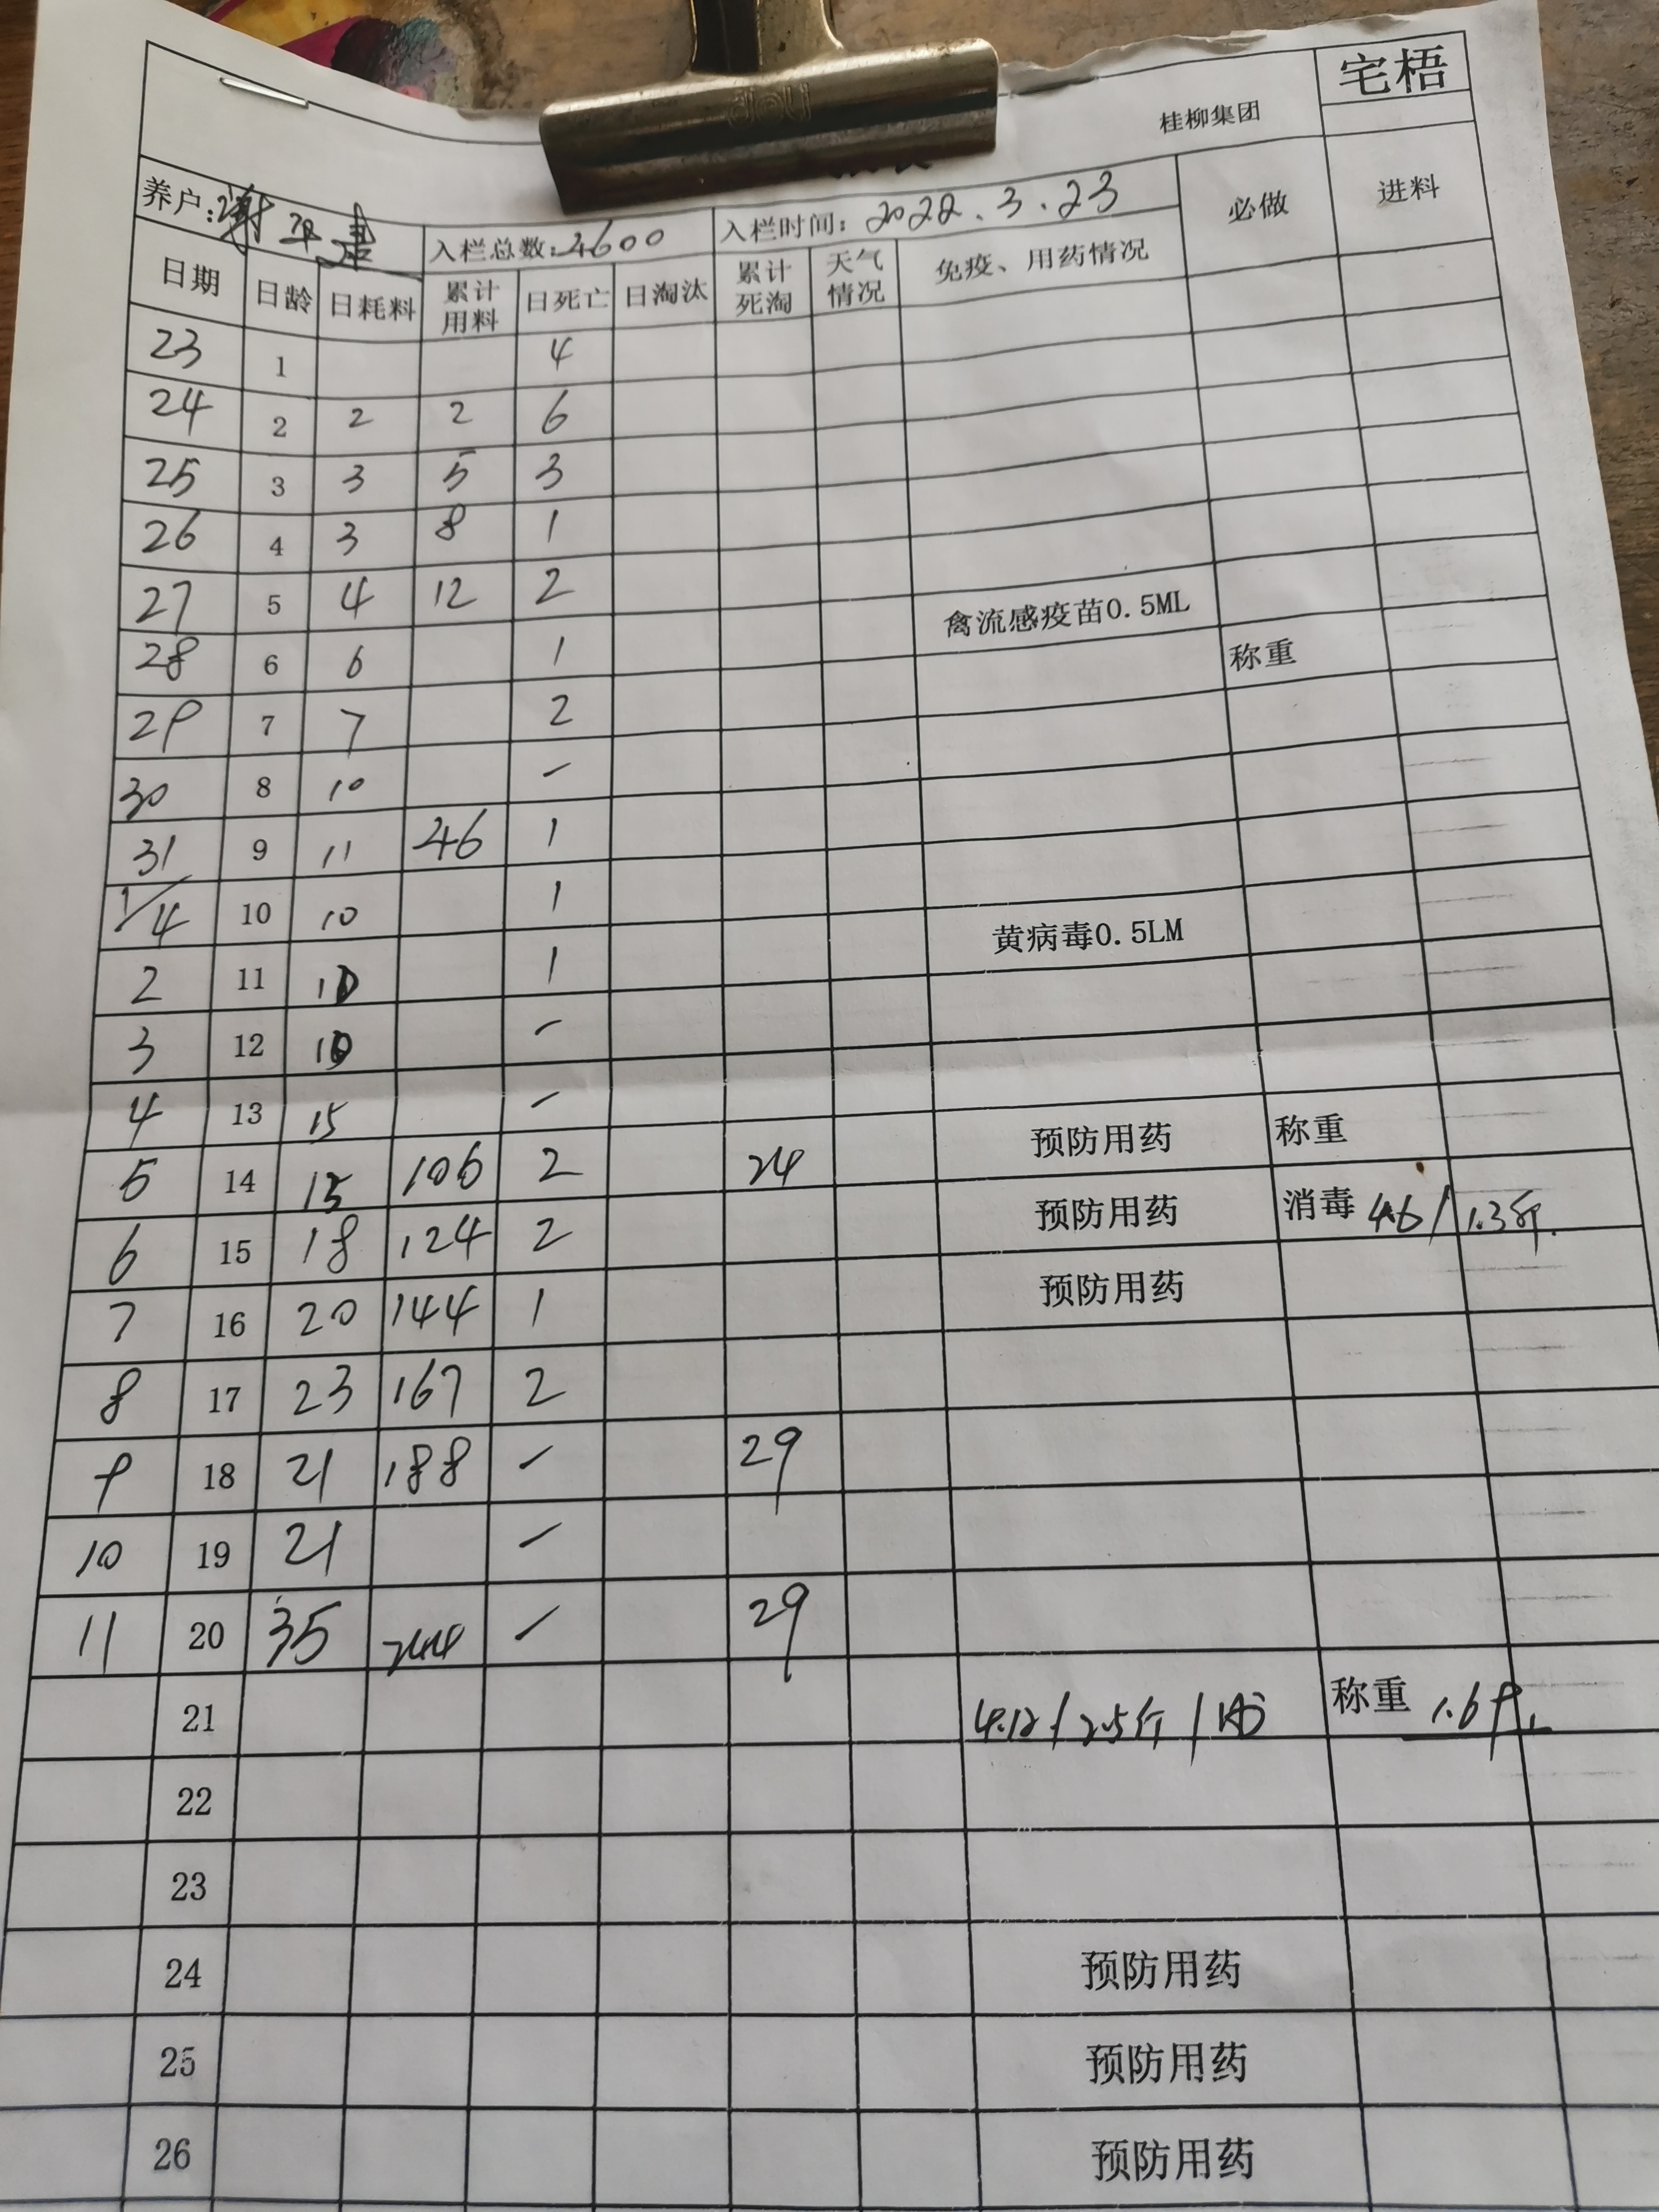 宅梧
桂柳集团
养户:谢平建 入栏总数:2600 入栏时间: 2022.3.23 必做 进料
日期 日龄 日耗料 累计用料 日死亡 日淘汰 累计死淘 天气情况 免疫、用药情况
23 1 4
24 2 2 2 6
25 3 3 5 3
26 4 3 8 1
27 5 4 12 2 禽流感疫苗0.5ML
28 6 6 1 称重
29 7 7 2
30 8 10 -
31 9 11 46 1
1/4 10 10 1 黄病毒0.5LM
2 11 10 1
3 12 10 -
4 13 15 - 预防用药 称重
5 14 15 106 2 24 预防用药 消毒 4.6/1.3斤.
6 15 18 124 2 预防用药
7 16 20 144 1
8 17 23 167 2
9 18 21 188 - 29
10 19 21 -
11 20 35 244 - 29
21 4.12/2.5斤/ 称重 1.6
22
23
24 预防用药
25 预防用药
26 预防用药